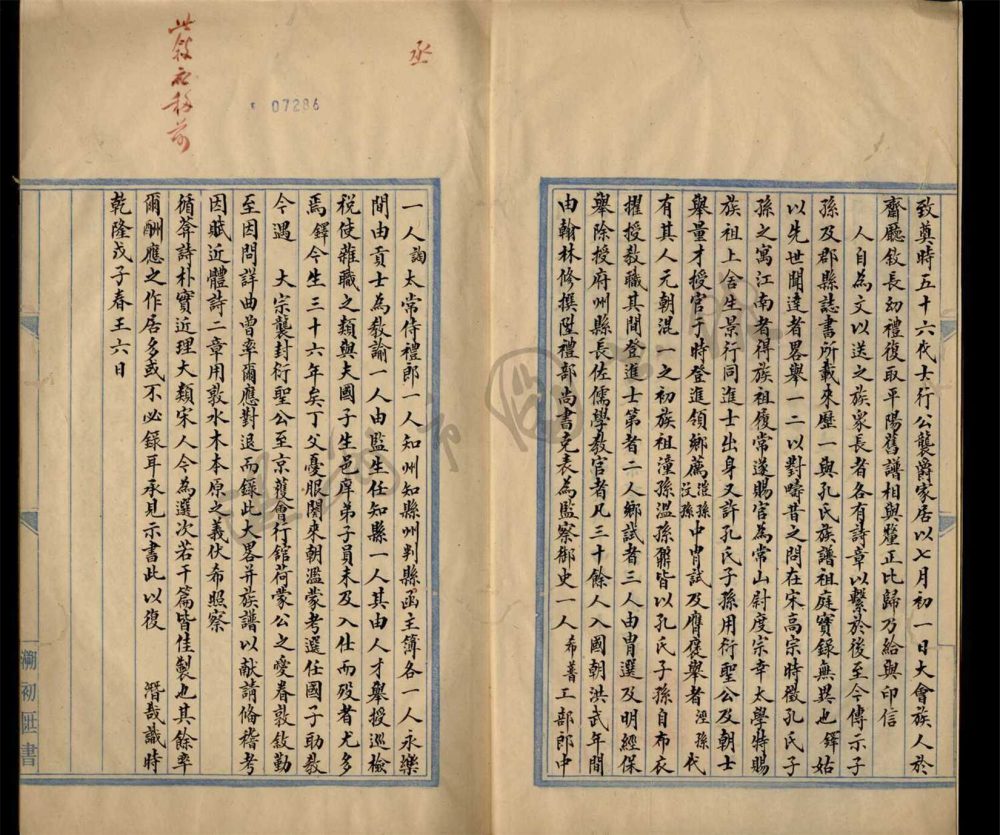 致奠時五十六代士行公襲爵家居以七月初一日大會族人於
齋廳敘長幼禮復取平陽舊譜相與釐正比歸乃給與印信
人自為文以送之族家長者各有詩章以繫於後至今傳示子
孫及郡縣誌書所載來歷一與孔氏族譜祖庭實錄無異也鐸姑
以先世聞達者畧舉一二以對疇昔之問在宋高宗時徵孔氏子
孫之寓江南者得族祖履常遂賜官為常山尉度宗幸太學特賜
族祖上舍生景行同進士出身又許孔氏子孫用衍聖公及朝士
舉量才授官于時登進領鄉薦潼孫汶孫中胄試及膺褒舉者涇孫代
有其人元朝混一之初族祖潼孫溫孫輩皆以孔氏子孫自布衣
擢授教職其間登進士第者二人鄉試者三人由胄選及明經保
舉除授府州縣長佐儒學教官者凡三十餘人入國朝洪武年間
由翰林修撰陞禮部尚書克表為監察御史一人希普工部郎中
一人誨太常侍禮郎一人知州知縣州判縣丞主簿各一人永樂
間由貢士為教諭一人由監生任知縣一人其由人才舉授巡檢
税使雜職之類與夫國子生邑庠弟子員未及入仕而歿者尤多
焉鐸今生三十六年矣丁父憂服闋來朝濫蒙考選任國子助教
今遇 大宗襲封衍聖公至京獲會行館荷蒙公之愛眷敦敘勤
至因問詳曲曾率爾應對退而錄此大畧并族譜以献請俻稽考
因賦近體詩二章用敦水木本原之義伏希照察
循菴詩朴實近理大類宋人今為選次若干篇皆佳製也其餘率
爾酬應之作居多或不必録耳承見示書此以復 潛哉識時
乾隆戊子春王六日
丞
07286
此敍應移前
瀨初匪書